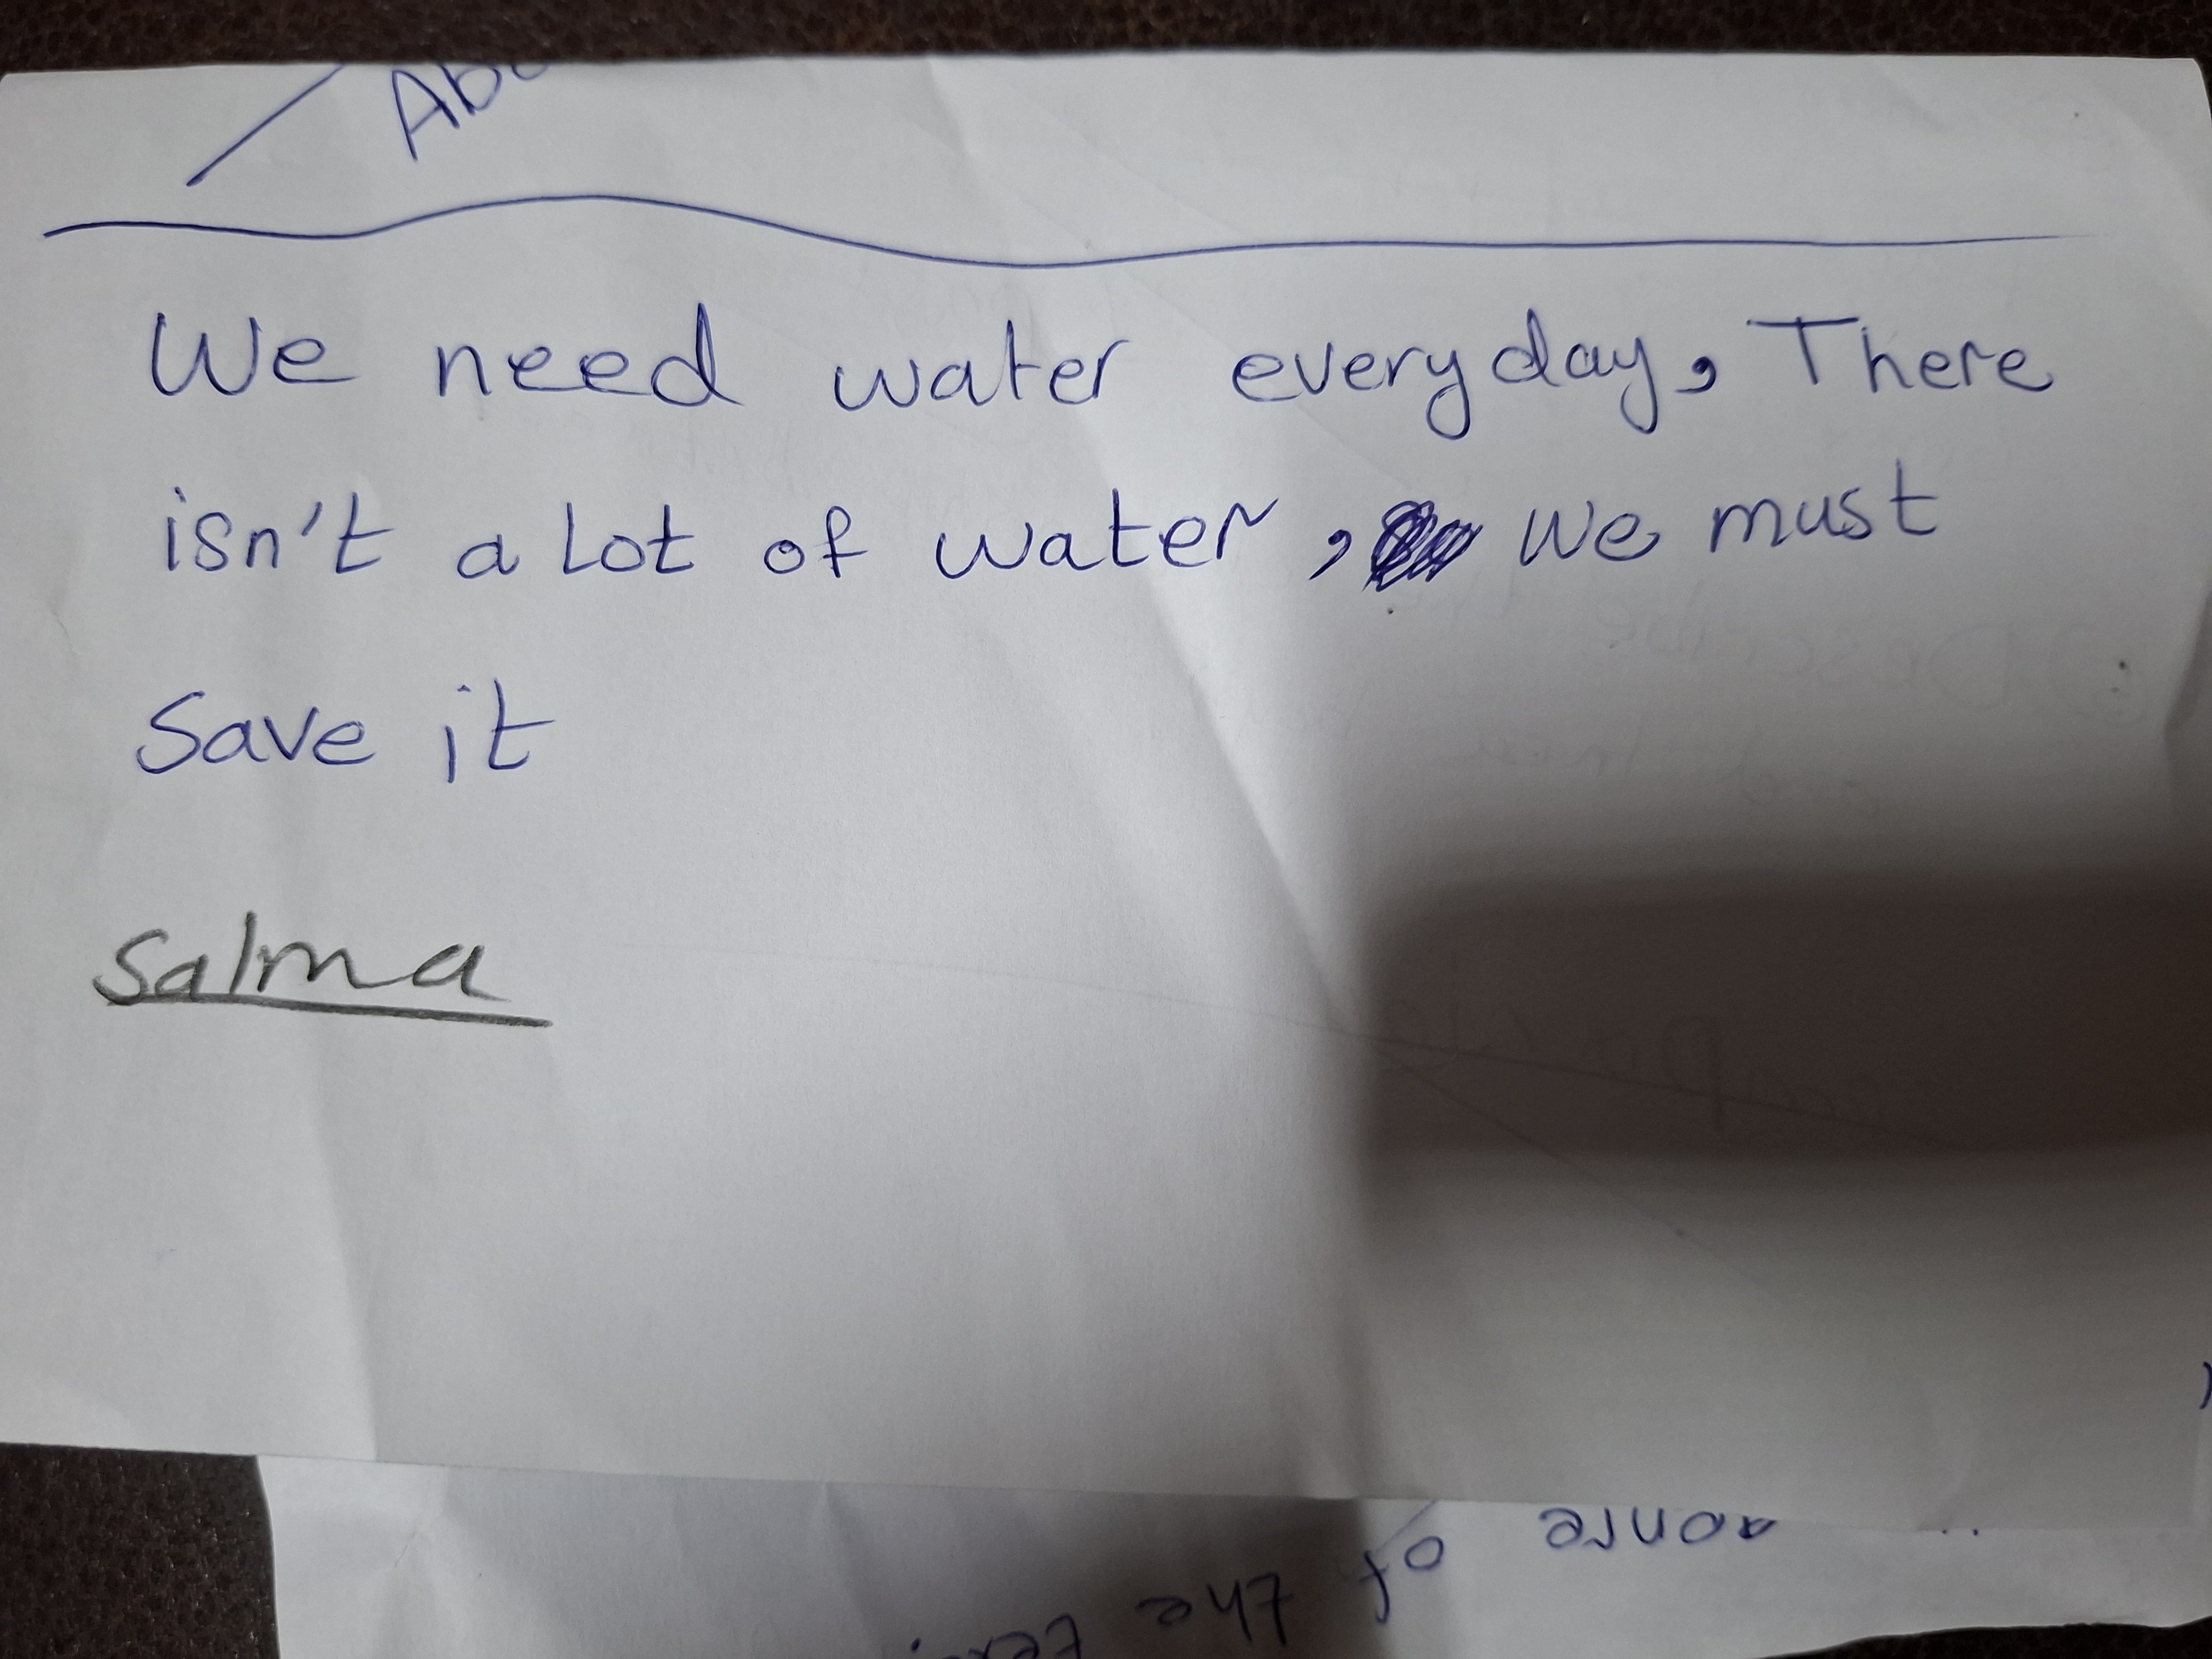 We need water everyday, There
isn't a lot of water, we must
Save it
Salma
of the